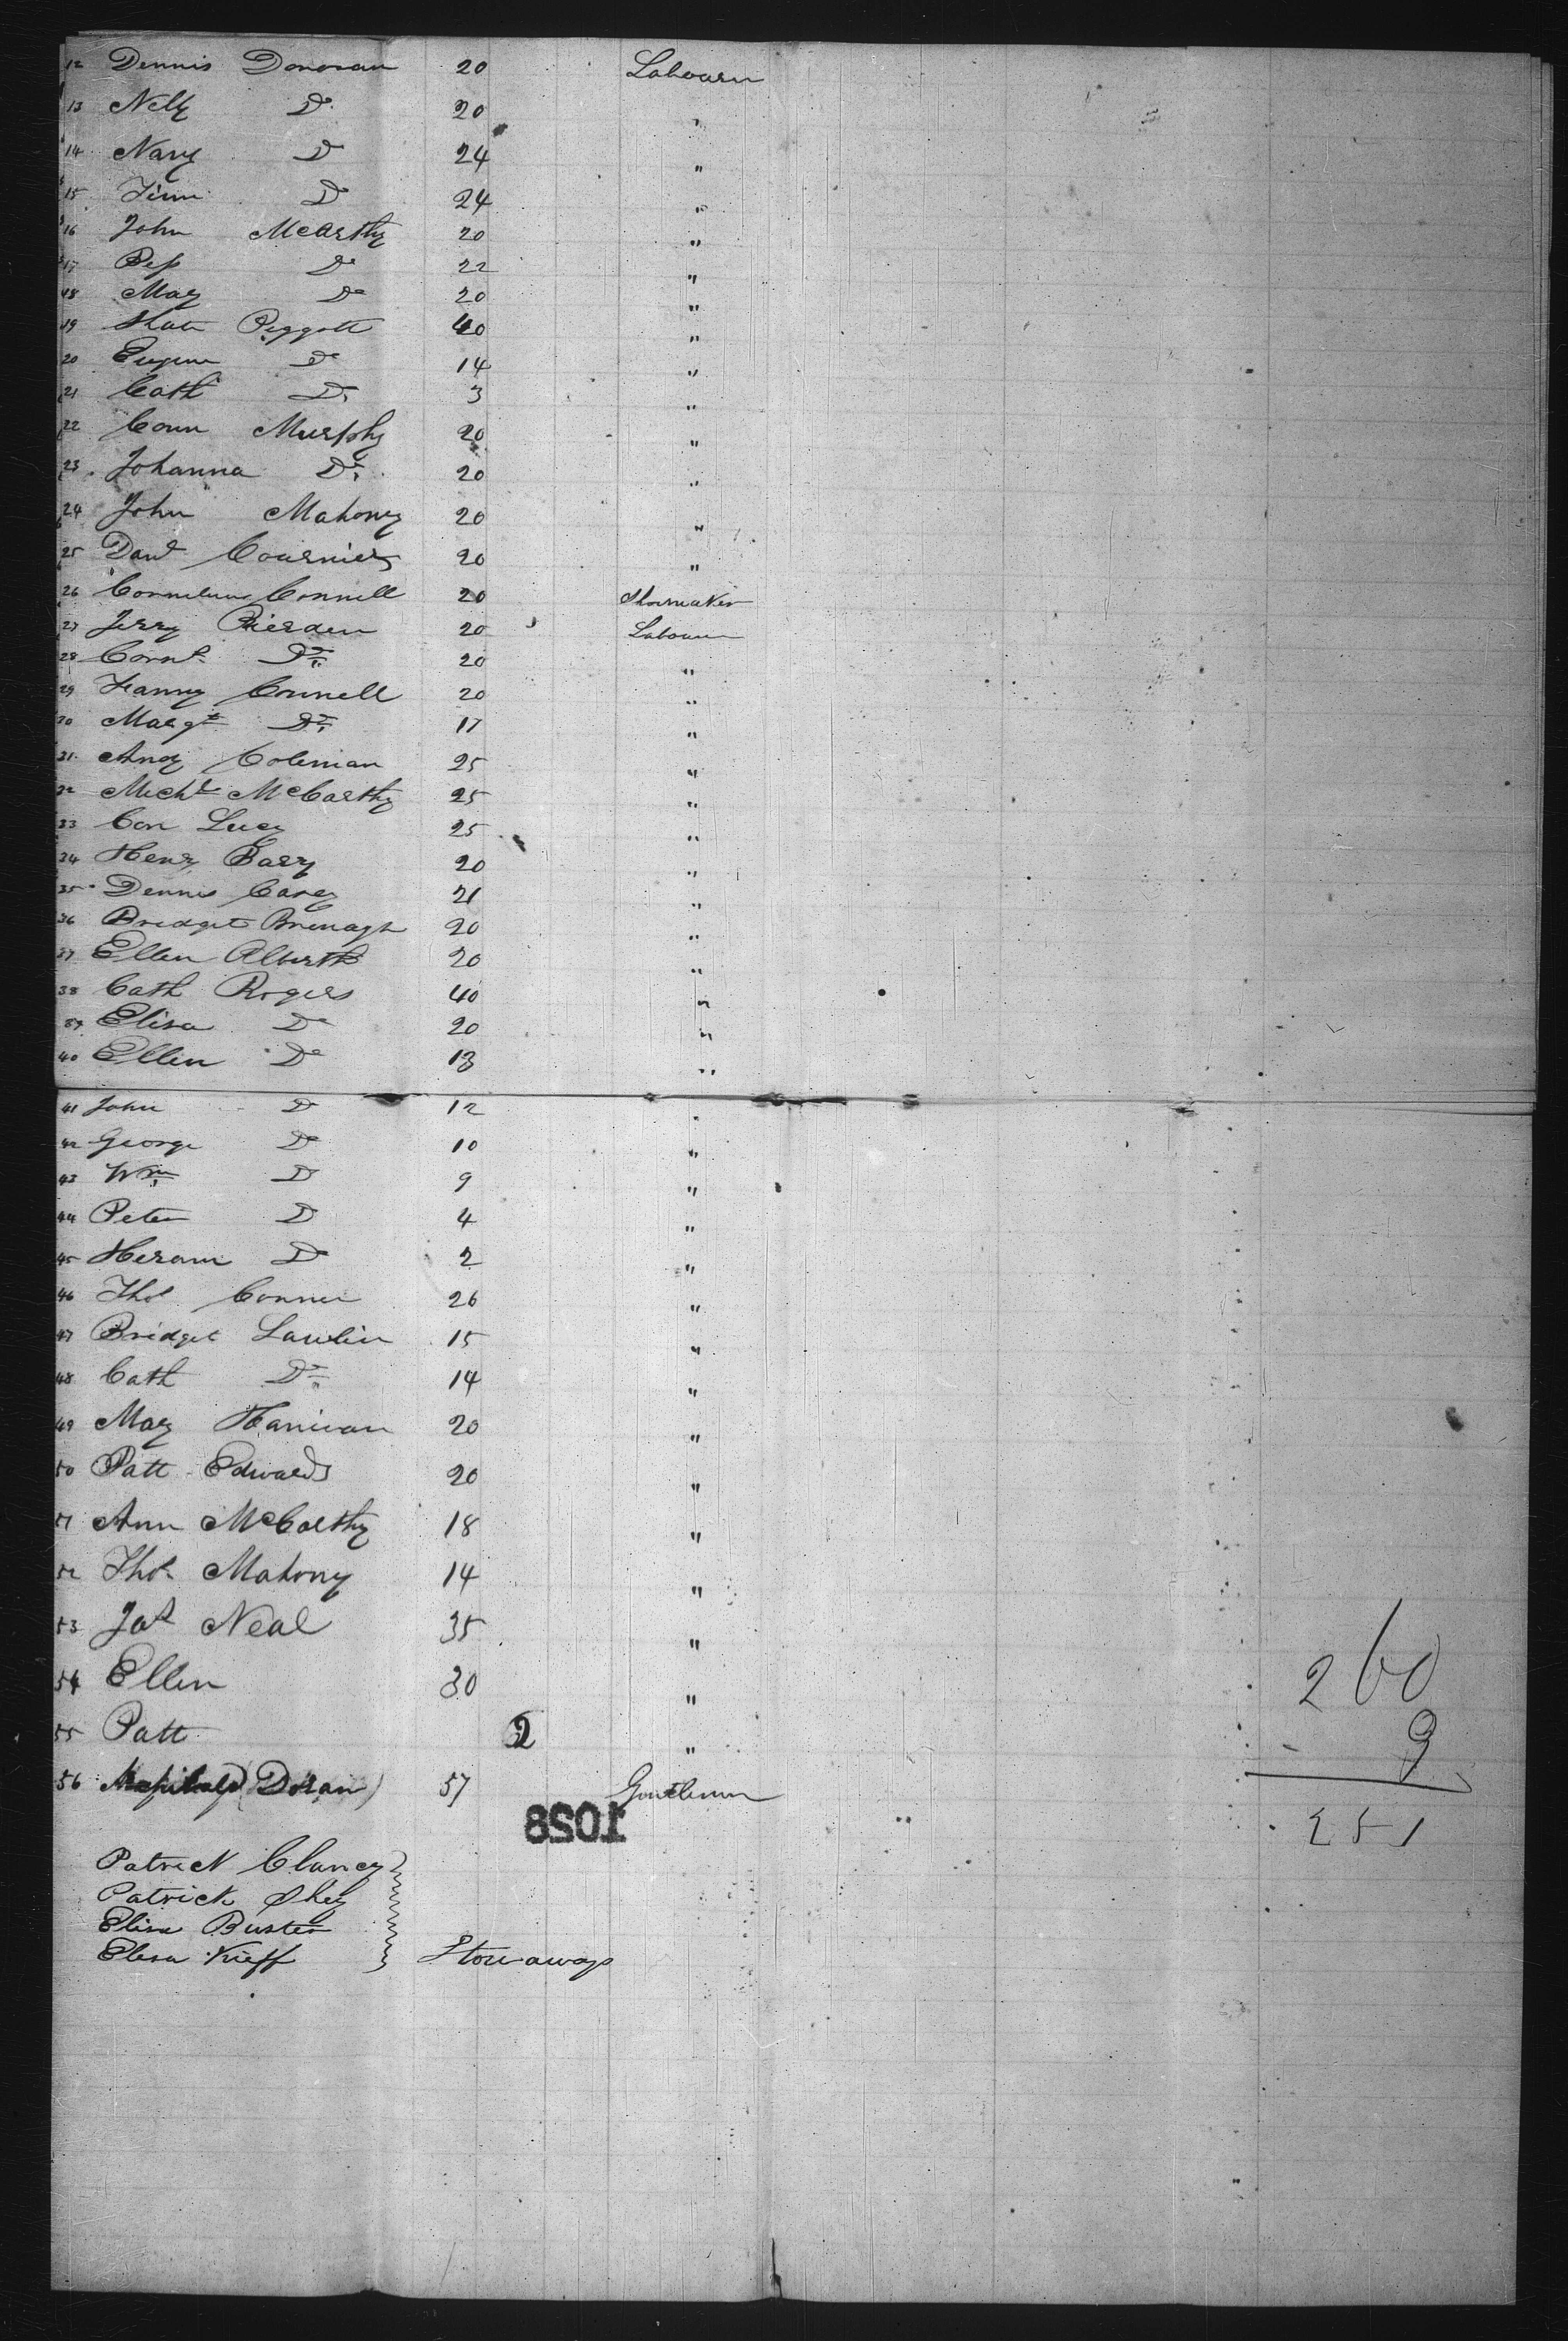 12 Dennis Donovan 20 Labourer
13 Nelly Do 20 "
14 Nancy Do 24 "
15 Timn Do 24 "
16 John McCarthy 20 "
17 Do 22 "
18 Mary Do 20 "
19 Peggott 40 "
20 Eugene Do 14 "
21 Cath Do 3 "
22 Conn Murphy 20 "
23 Johanna Do 20 "
24 John Mahony 20 "
25 Danl 20 "
26 Cornelius Connell 20 Shoemaker
27 Jerry Rierden 20 Labourer
28 Cornl Do 20 "
29 Fanny Connell 20 "
30 Margt Do 17 "
31 Andy Coleman 25 "
32 Michl McCarthy 25 "
33 Con Lucy 25 "
34 Henry Barry 20 "
35 Dennis Carey 21 "
36 Bridget Brenagh 20 "
37 Ellen Alberth 20 "
38 Cath Rogers 40 "
39 Elisa Do 20 "
40 Ellen Do 13 "
41 John Do 12 "
42 George Do 10 "
43 Wm Do 9 "
44 Peter Do 4 "
45 Heram Do 2 "
46 Thos Conner 26 "
47 Bridget Lawlin 15 "
48 Cath Do 14 "
49 Mary Hanivan 20 "
50 Patt Edwards 20 "
51 Ann McCarthy 18 "
52 Thos Mahony 14 "
53 Jas Neal 35 "
54 Ellen 30 "
55 Patt 2 "
56 (Doran) 57 Gentleman
260
9
251
1028
Patrick Clancy
Patrick Shey
Elisa Buster
Elesa Kieff Stowaways